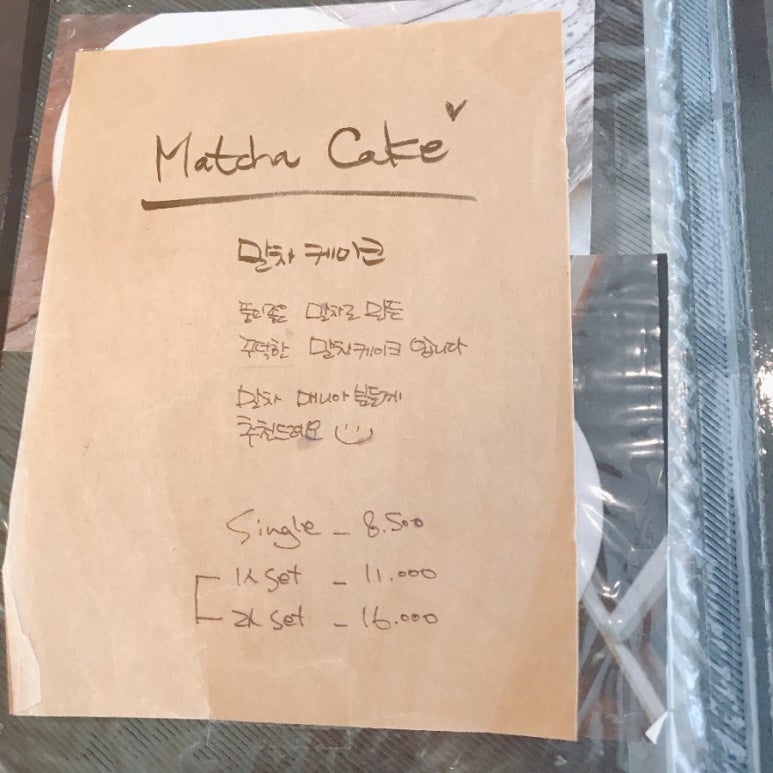 Matcha Cake
말차 케이크
풍미좋은 말차로 만든
꾸덕한 말차케이크 입니다
말차 매니아 분들께
추천드려요
Single - 8.500
1人 set - 11.000
2人 set - 16.000